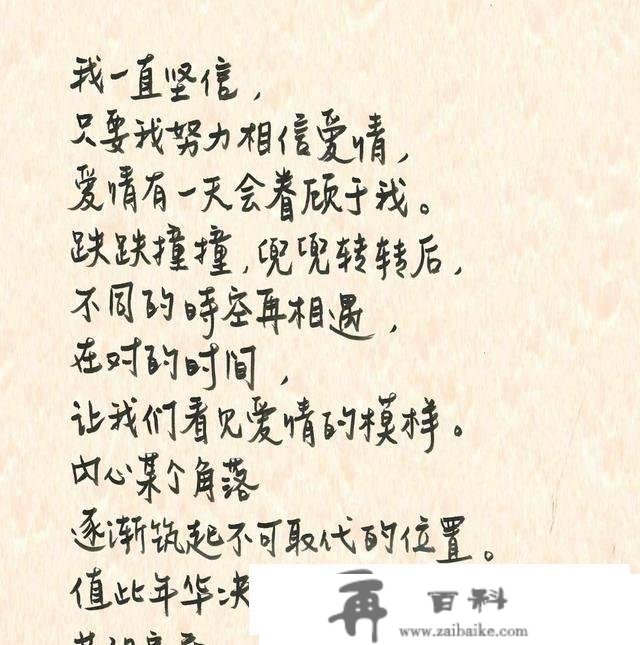 我一直坚信，
只要我努力相信爱情，
爱情有一天会眷顾于我。
跌跌撞撞，兜兜转转后，
不同的時空再相遇，
在对的时间，
让我们看见爱情的模样。
内心某个角落
逐渐筑起不可取代的位置。
值此年华决
再 百科
www.zaibaike.com